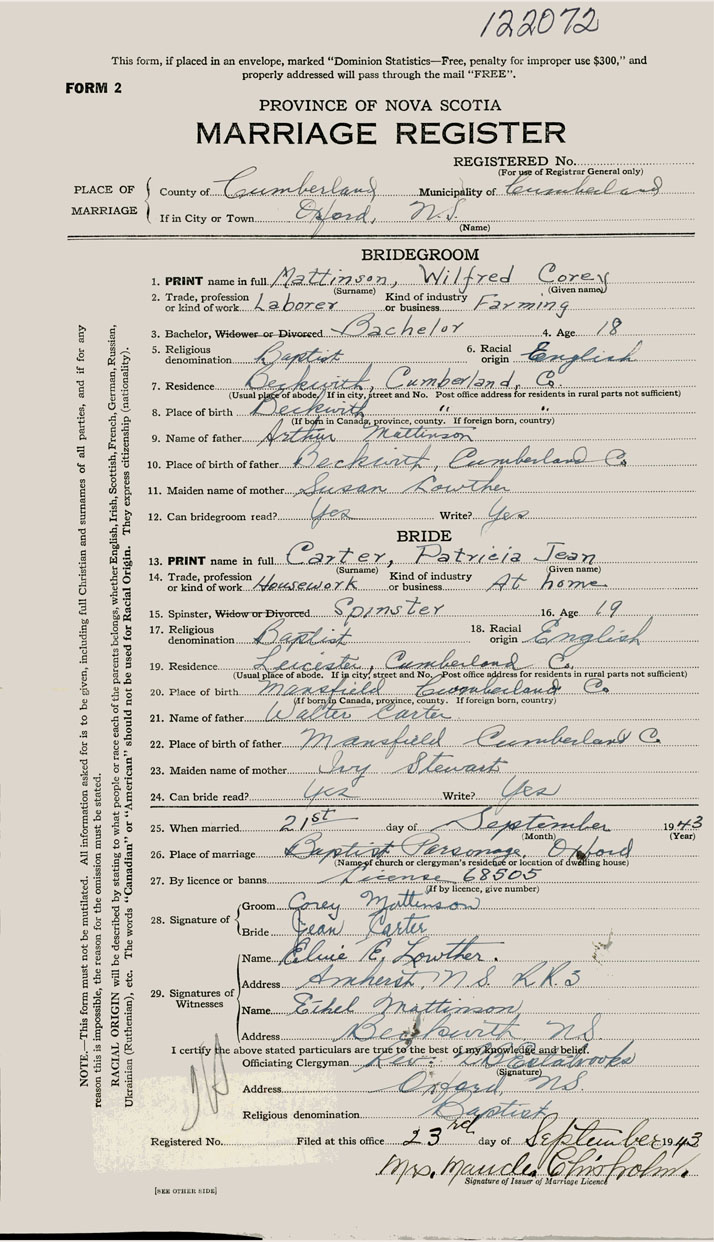 122072
This form, if placed in an envelope, marked "Dominion Statistics—Free, penalty for improper use $300," and
properly addressed will pass through the mail "FREE".
FORM 2
PROVINCE OF NOVA SCOTIA
MARRIAGE REGISTER
REGISTERED No.
(For use of Registrar General only)
PLACE OF MARRIAGE
County of Cumberland Municipality of Cumberland
If in City or Town Oxford, N.S.
(Name)
BRIDEGROOM
1. PRINT name in full Mattinson, Wilfred Corey
(Surname) (Given name)
2. Trade, profession or kind of work Laborer Kind of industry or business Farming
3. Bachelor, Widower or Divorced Bachelor 4. Age 18
5. Religious denomination Baptist 6. Racial origin English
7. Residence Beckwith, Cumberland, Co.
(Usual place of abode. If in city, street and No. Post office address for residents in rural parts not sufficient)
8. Place of birth Beckwith " "
(If born in Canada, province, county. If foreign born, country)
9. Name of father Arthur Mattinson
10. Place of birth of father Beckwith, Cumberland Co.
11. Maiden name of mother Susan Lowther
12. Can bridegroom read? Yes Write? Yes
BRIDE
13. PRINT name in full Carter, Patricia Jean
(Surname) (Given name)
14. Trade, profession or kind of work Housework Kind of industry or business At home
15. Spinster, Widow or Divorced Spinster 16. Age 19
17. Religious denomination Baptist 18. Racial origin English
19. Residence Leicester, Cumberland Co.
(Usual place of abode. If in city, street and No. Post office address for residents in rural parts not sufficient)
20. Place of birth Mansfield Cumberland Co
(If born in Canada, province, county. If foreign born, country)
21. Name of father Walter Carter
22. Place of birth of father Mansfield Cumberland Co
23. Maiden name of mother Ivy Stewart
24. Can bride read? Yes Write? Yes
25. When married 21st day of September 1943
(Month) (Year)
26. Place of marriage Baptist Parsonage, Oxford
(Name of church or clergyman's residence or location of dwelling house)
27. By licence or banns License 68505
(If by licence, give number)
28. Signature of Groom Corey Mattinson
Bride Jean Carter
29. Signatures of Witnesses
Name Elvie E. Lowther.
Address Amherst, N.S. R.R.3
Name Ethel Mattinson
Address Beckwith NS
I certify the above stated particulars are true to the best of my knowledge and belief.
Officiating Clergyman Rev. Estabrooks
(Signature)
Address Oxford, NS
Religious denomination Baptist
Registered No. Filed at this office 23rd day of September 1943
Mrs. Maude Chisholm.
Signature of Issuer of Marriage Licence
[SEE OTHER SIDE]
NOTE.—This form must not be mutilated. All information asked for is to be given, including full Christian and surnames of all parties, and if for any
reason this is impossible, the reason for the omission must be stated.
RACIAL ORIGIN will be described by stating to what people or race each of the parents belongs, whether English, Irish, Scottish, French, German, Russian,
Ukrainian (Ruthenian), etc. The words "Canadian" or "American" should not be used for Racial Origin. They express citizenship (nationality).